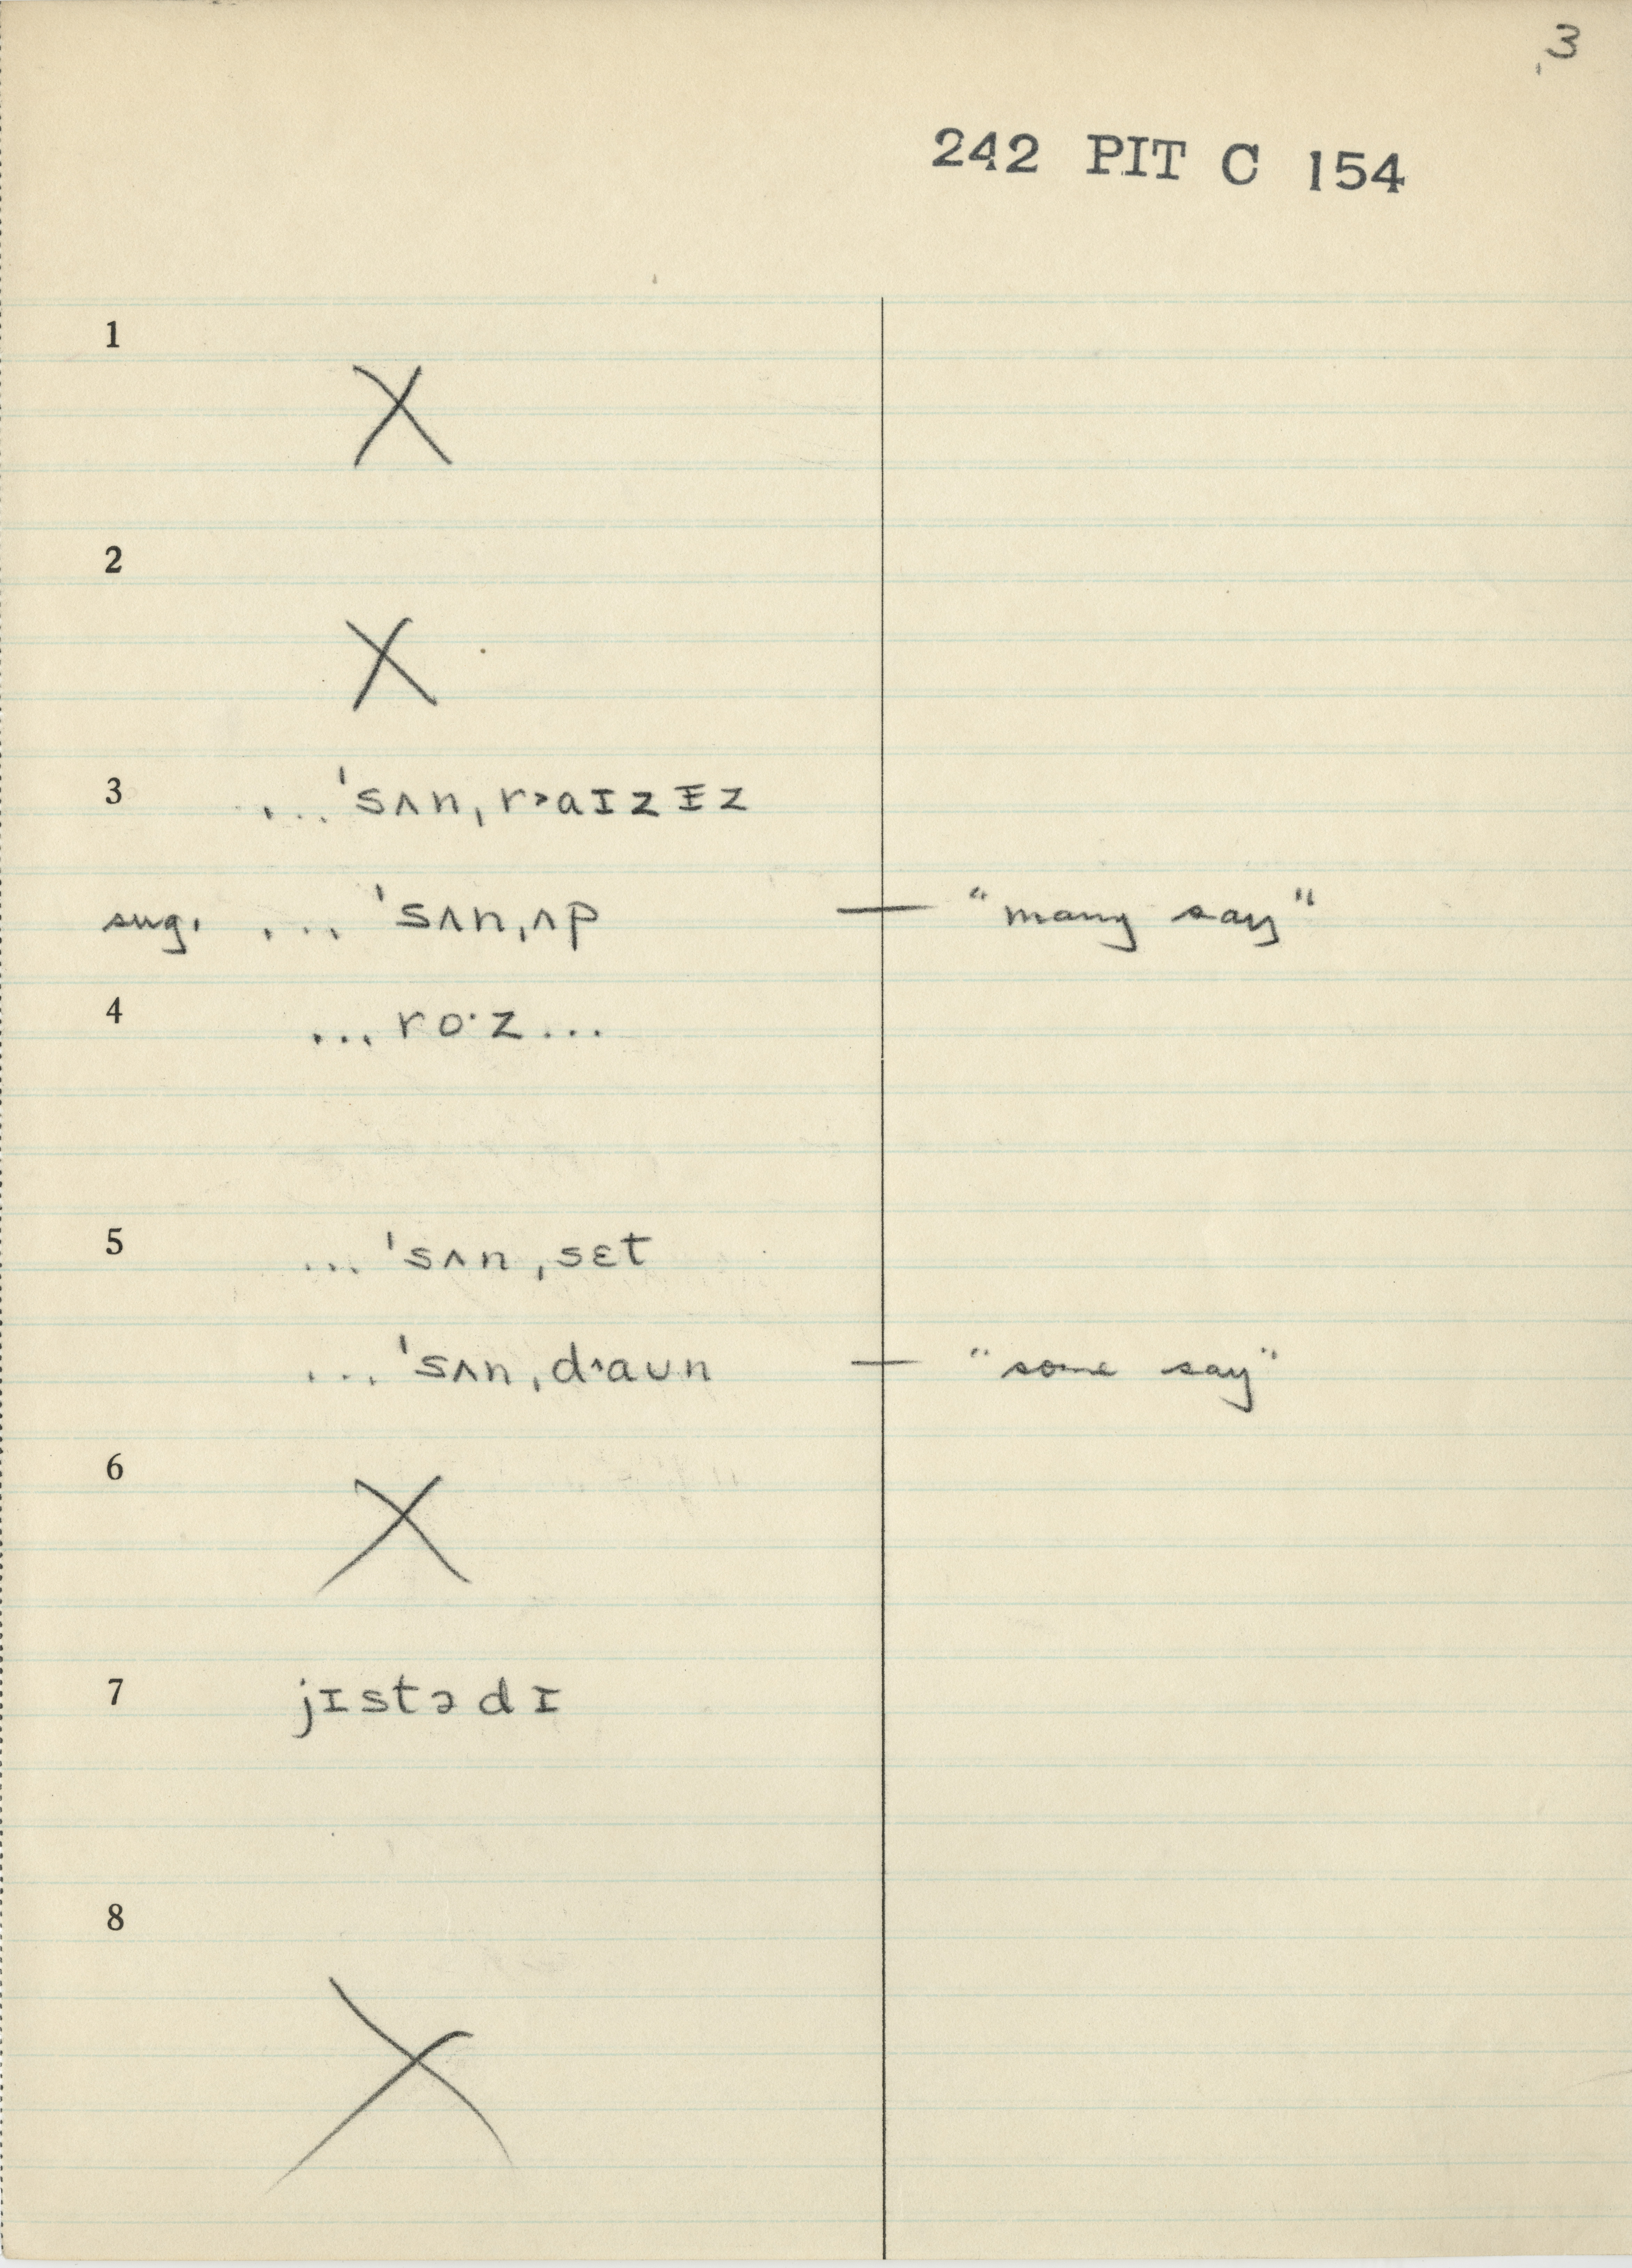 3
242 PIT C 154
1
X
2
X
3 ...ˈsʌnˌr˃aɪzɪ̵z
sug. ...ˈsʌnˌʌp — "many say"
4 ...ro·z...
5 ...ˈsʌnˌsɛt
...ˈsʌnˌd˃aʊn — "some say"
6
X
7 jɪstədɪ
8
X